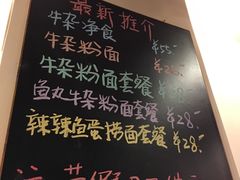 最新推介
牛杂净食 ¥55.-
牛杂粉面 ¥25.-
牛杂粉面套餐 ¥28.-
鱼丸牛杂粉面套餐 ¥28.-
辣辣鱼蛋捞面套餐 ¥28.-